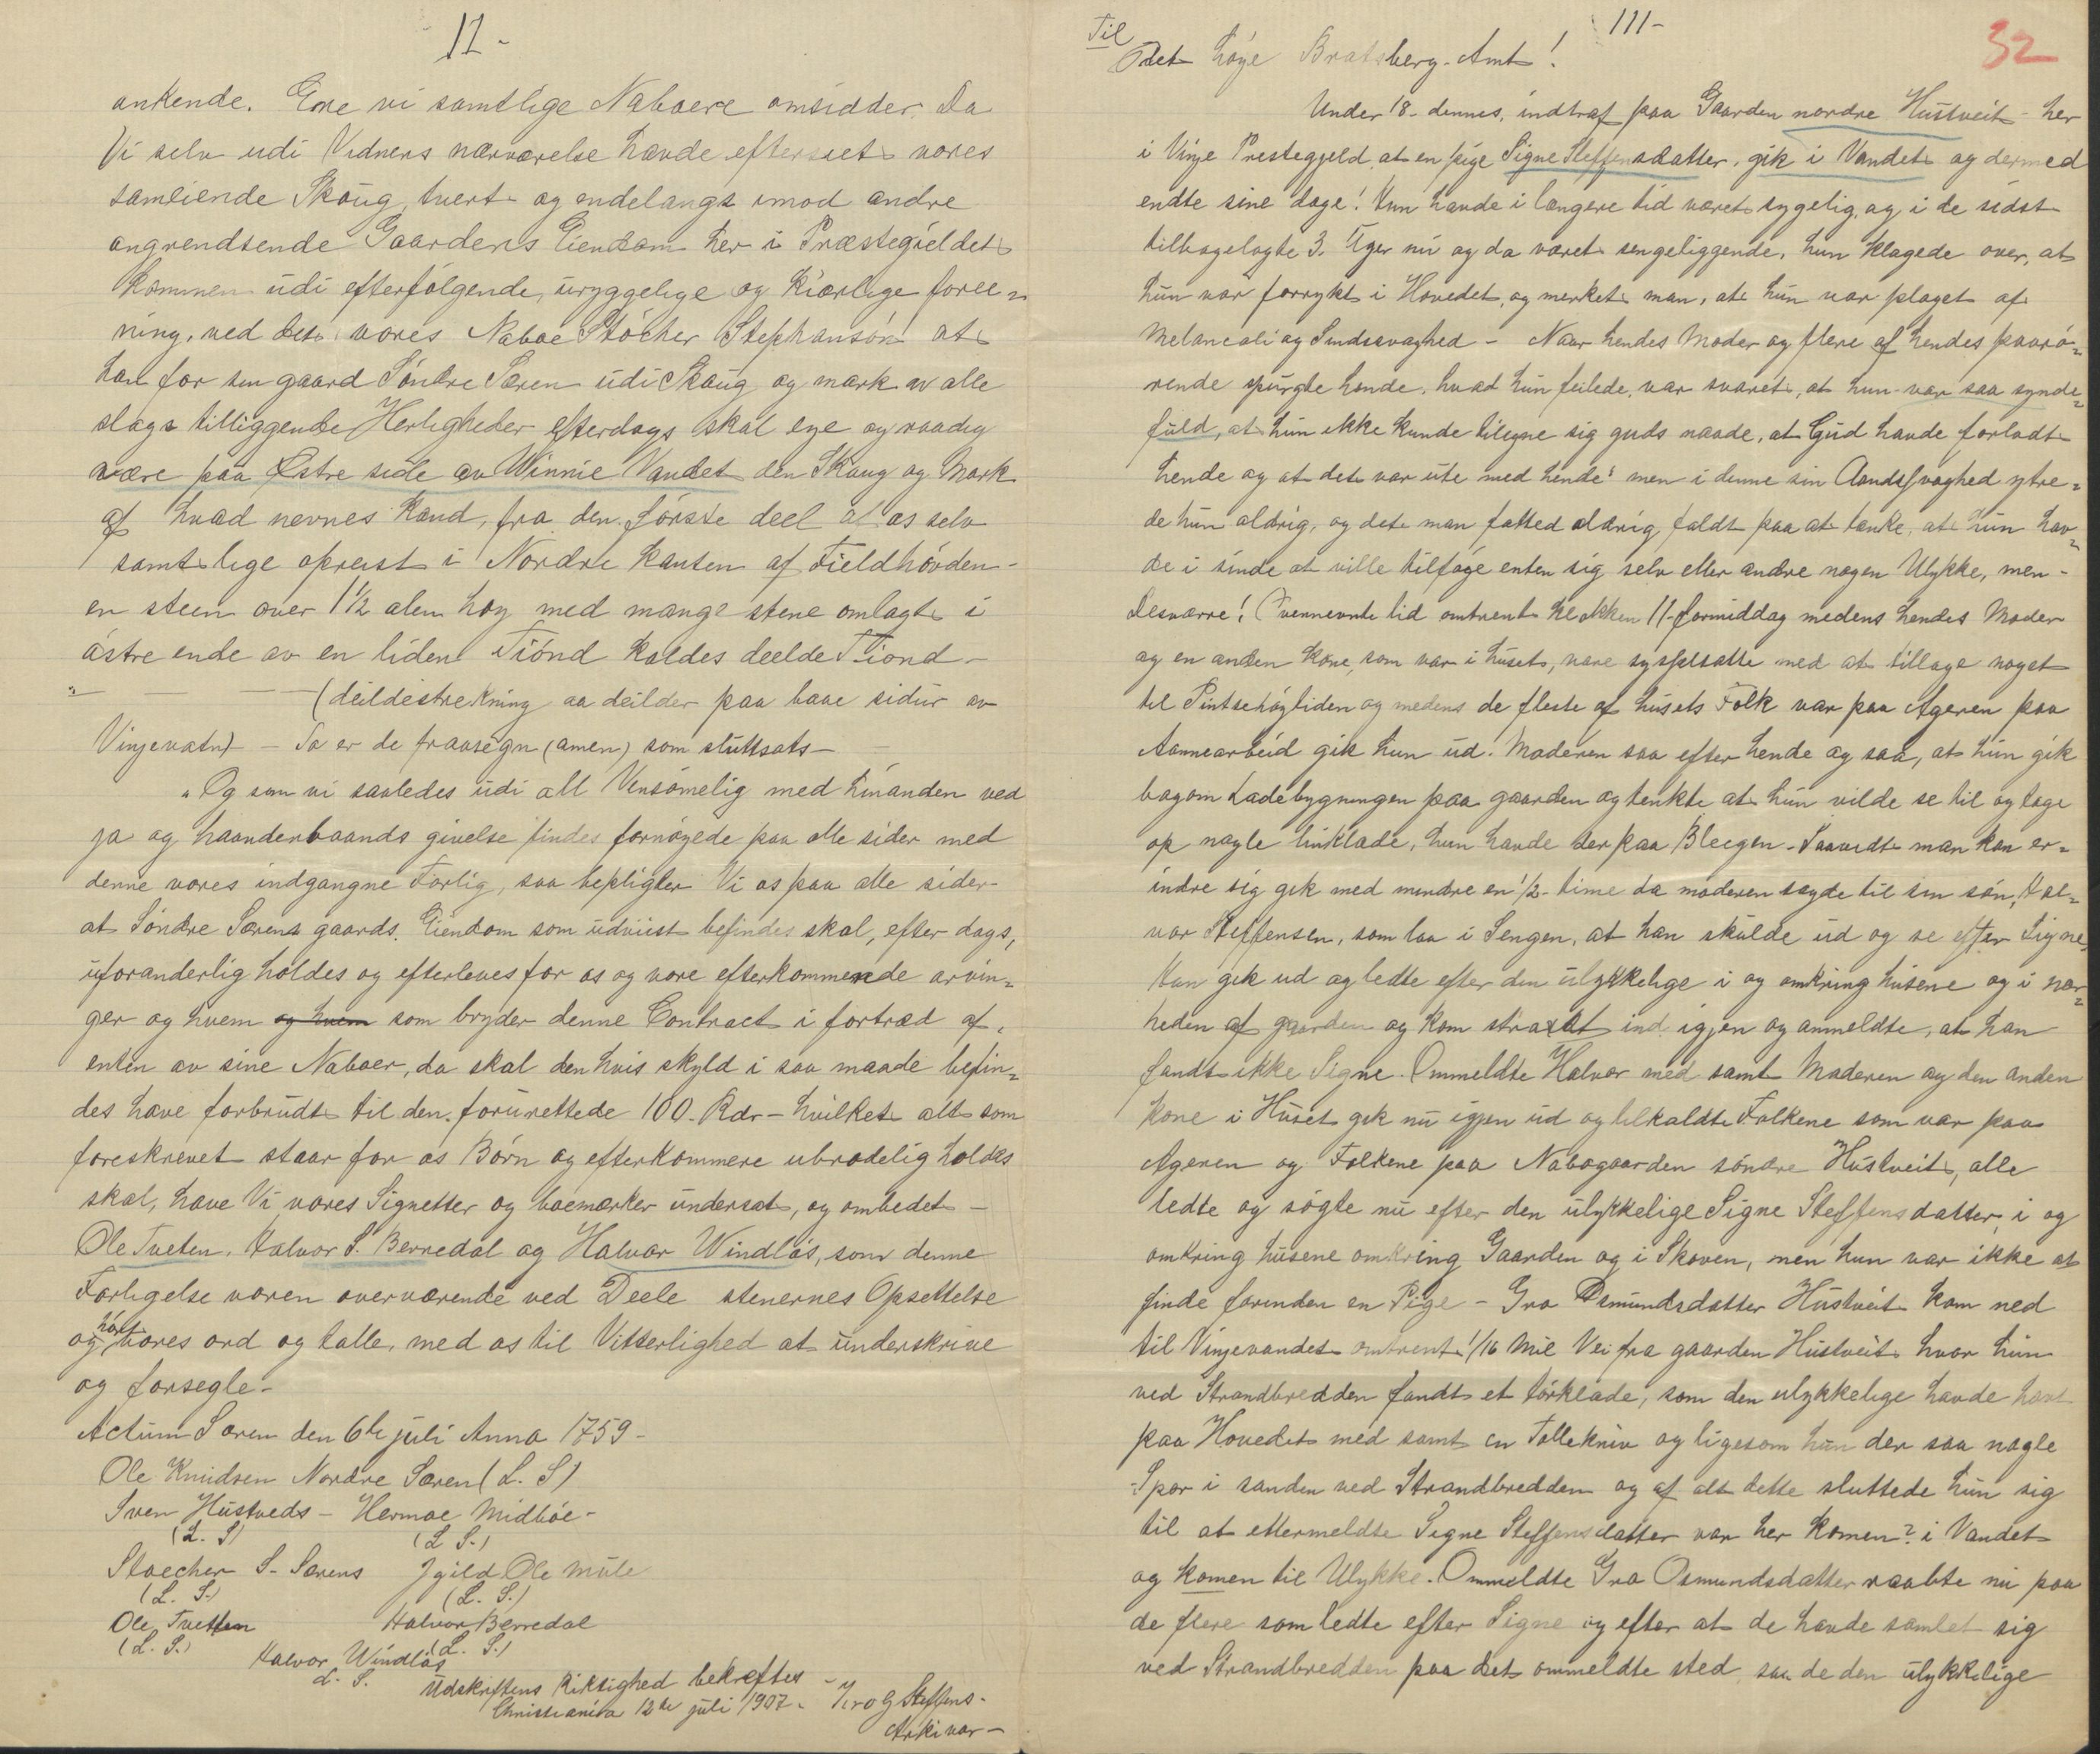 11-
ankende. Ere vi samtlige Naboere omsidder, Da
Vi selv udi Vidners nærværelse havde efterseet vores
samliende Skoug, tvert og endelangs imod andre
angrendsende Gaardens Eiendom her i Præstegieldet
kommen udi efterfølgende, uryggelige og kiærlige foree-
ning, ved det vores Naboe Stöcher Stephansön at
han for sin gaard Söndre Særen udi Skoug og mark av alle
slags tilliggende Herligheder efterdags skal eye og raadig
være paa Østre side av Winnie Vandet den Skoug og Mark
af hvad nevnes kand, fra den förste deel at os selv
samtlige opreist i Nordre kanten af Fieldhövden-
en steen over 1½ alen høy med mange stene omlagt i
östre ende av en liden Tiönd kaldes deelde Tiönd-
"— (deildestrekning aa deilder paa baae sidur av
Vinjevatn) - So er de fraasegn (amen) som sluttsats-
"Og som vi saaledes udi all Vensömelig med hinanden ved
ja og haandenbaands givelse findes fornöyede paa alle sider med
denne vores indgangne Forlig, saa bepligter Vi os paa alle sider-
at Söndre Særens gaards. Eiendom som udviist befindes skal, efter dags,
uforanderlig holdes og efterleves for os og vore efterkommende arvin-
ger og hvem og hvem som bryder denne Contract i fortræd af,
enten av sine Naboer, da skal den hvis skyld i saa maade befin-
des have forbrudt til den forurettede 100. Rdr- hvilket alt som
foreskrevet staar for os Börn og efterkommere ubrødelig holdes
skal, have Vi vores Signetter og boemærker undersat, og ombedet-
Ole Tveten, Halvor S. Berredal og Halvor Windlös, som denne
Forligelse været overværende ved Deele stenernes Opsettelse
og hört vores ord og talle, med os til Vitterlighed at underskrive
og forsegle-
Actum Særen den 6te juli Anno 1759-
Ole Knudsen Nordre Særen (L. S)
Sven Hustveds - Hermoe Midböe-
(L. S) (L S.)
Stoecher S- Særens Jgild Ole Mule
(L. S.) (L. S.)
Ole Tvetten Halvor Berredal
(L. S.) (L. S.)
Halvor Windlös
L. S.
Udskriftens Riktighed bekreftes -
Christiania 12te juli 1907. Haavard Steffens-
Arkivar-
111-
32
Til
Det høye Bratsberg-Amt!
Under 18- dennes, indtraf paa Gaarden nordre Hustveit - her
i Vinje Prestegjeld at en pige Signe Steffensdatter, gik i Vandet og dermed
endte sine dage! Hun havde i længere tid været sygelig, og i de sidst
tilbagelagte 3. Uger nu og da været sengeliggende, hun klagede over, at
hun var forrykt i Hovedet, og merket man, at hun var plaget af
Melancoli og Sindssvaghed - Naar hendes Moder og flere af hendes paarö-
rende spurgte hende, hvad hun feilede, var svaret, at hun var saa synde-
fuld, at hun ikke kunde tilegne sig guds naade, at Gud havde forladt
hende og at det var ute med hende" men i denne sin Aandssvaghed ytre-
de hun aldrig, og det man fatted aldrig faldt paa at tænke, at hun hav-
de i sinde at ville tilføye enten sig selv eller andre nogen Ulykke, men-
Desværre! Ovennevnte tid omtrent klokken 11-formiddag medens hendes Moder
og en anden kone, som var i huset, vare sysselsatte med at tillage noget
til Pintsehöytiden og medens de fleste af husets Folk var paa Ageren paa
Aannearbeid gik hun ud. Moderen saa efter hende og saa, at hun gik
bagom Ladebygningen paa gaarden og tenkte at hun vilde se til og tage
op nogle linklæde, hun havde der paa Bleegen - Saavidt man kan er-
indre sig gik med mindre en ½-time da moderen sagde til sin sön, Hal-
vor Steffensen, som laa i Sengen, at han skulde ud og se efter Signe,
Han gik ud og ledte efter den ulykkelige i og omkring husene og i nær-
heden af gaarden og kom straxt ind igjen og anmeldte, at han
fandt ikke Signe. Ommeldte Halvor med samt Moderen og den anden
kone i Huset gik nu igjen ud og tilkaldte Folkene som var paa
Ageren og Folkene paa Nabogaarden söndre Hustveit, alle
ledte og sögte nu efter den ulykkelige Signe Steffensdatter i og
omkring husene omkring Gaarden og i Skoven, men hun var ikke at
finde forinden en Pige - Gro Osmundsdatter Hustveit kom ned
til Vinjevandet omtrent 1/16 Mil Vei fra gaarden Hustveit hvor hun
ved Strandbredden fandt et törklæde, som den ulykkelige havde havt
paa Hovedet med samt en Tollekniv og ligesom hun der saa nogle
Spor i sanden ved Strandbredden og af alt dette sluttede hun sig
til at ettermeldte Signe Steffensdatter var her komen? i Vandet
og komen til Ulykke. Ommeldte Gro Osmundsdatter raabte nu paa
de flere som ledte efter Signe og efter at de havde samlet sig
ved Strandbredden paa det ommeldte sted, saa de den ulykkelige